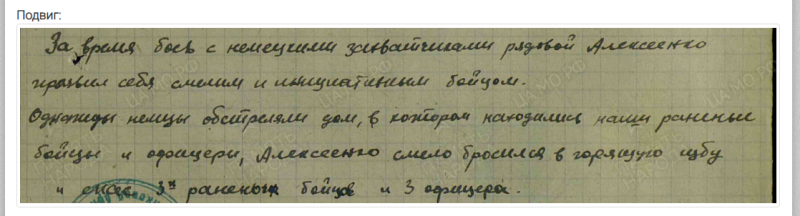 Подвиг:
За время боев с немецкими захватчиками рядовой Алексеенко
проявил себя смелим и инициативным бойцом.
Однажды немцы обстреляли дом, в котором находились наши раненые
бойцы и офицери, Алексеенко смело бросился в горящую избу
и спас 3х раненых бойцов и 3 офицера.